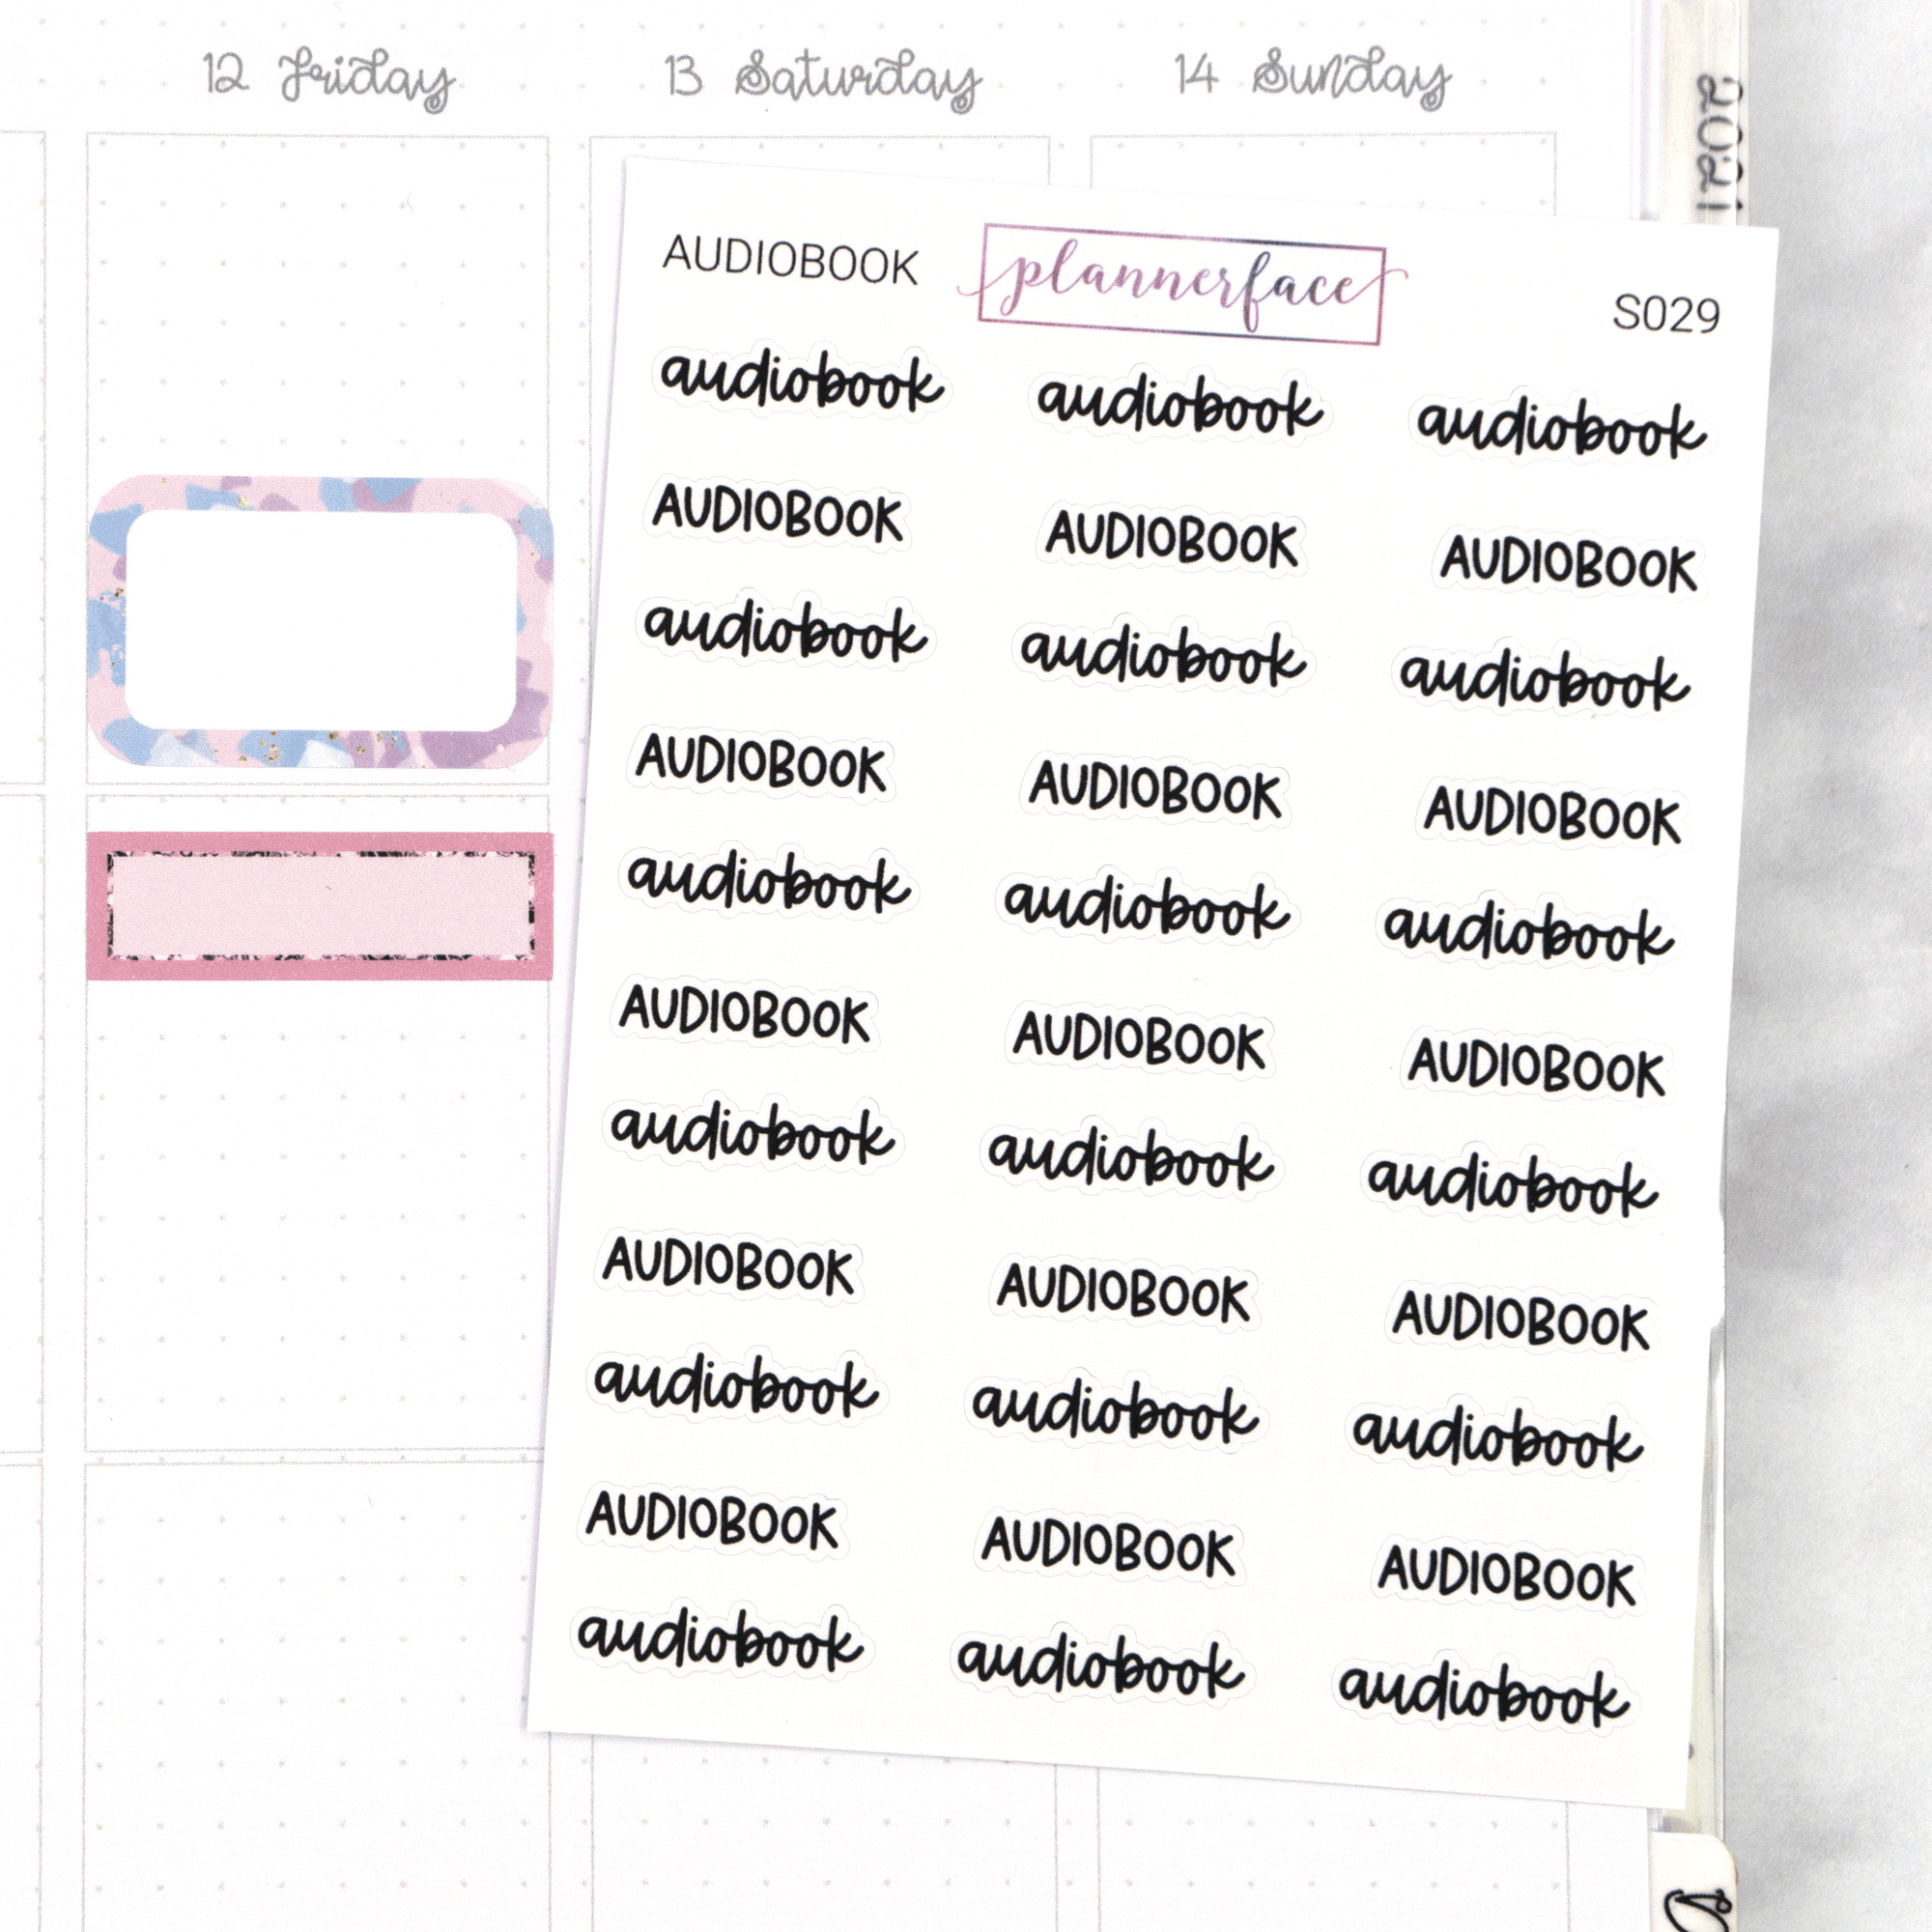 12 Friday 13 Saturday 14 Sunday
2021
AUDIOBOOK plannerface S029
audiobook audiobook audiobook
AUDIOBOOK AUDIOBOOK AUDIOBOOK
audiobook audiobook audiobook
AUDIOBOOK AUDIOBOOK AUDIOBOOK
audiobook audiobook audiobook
AUDIOBOOK AUDIOBOOK AUDIOBOOK
audiobook audiobook audiobook
AUDIOBOOK AUDIOBOOK AUDIOBOOK
audiobook audiobook audiobook
AUDIOBOOK AUDIOBOOK AUDIOBOOK
audiobook audiobook audiobook